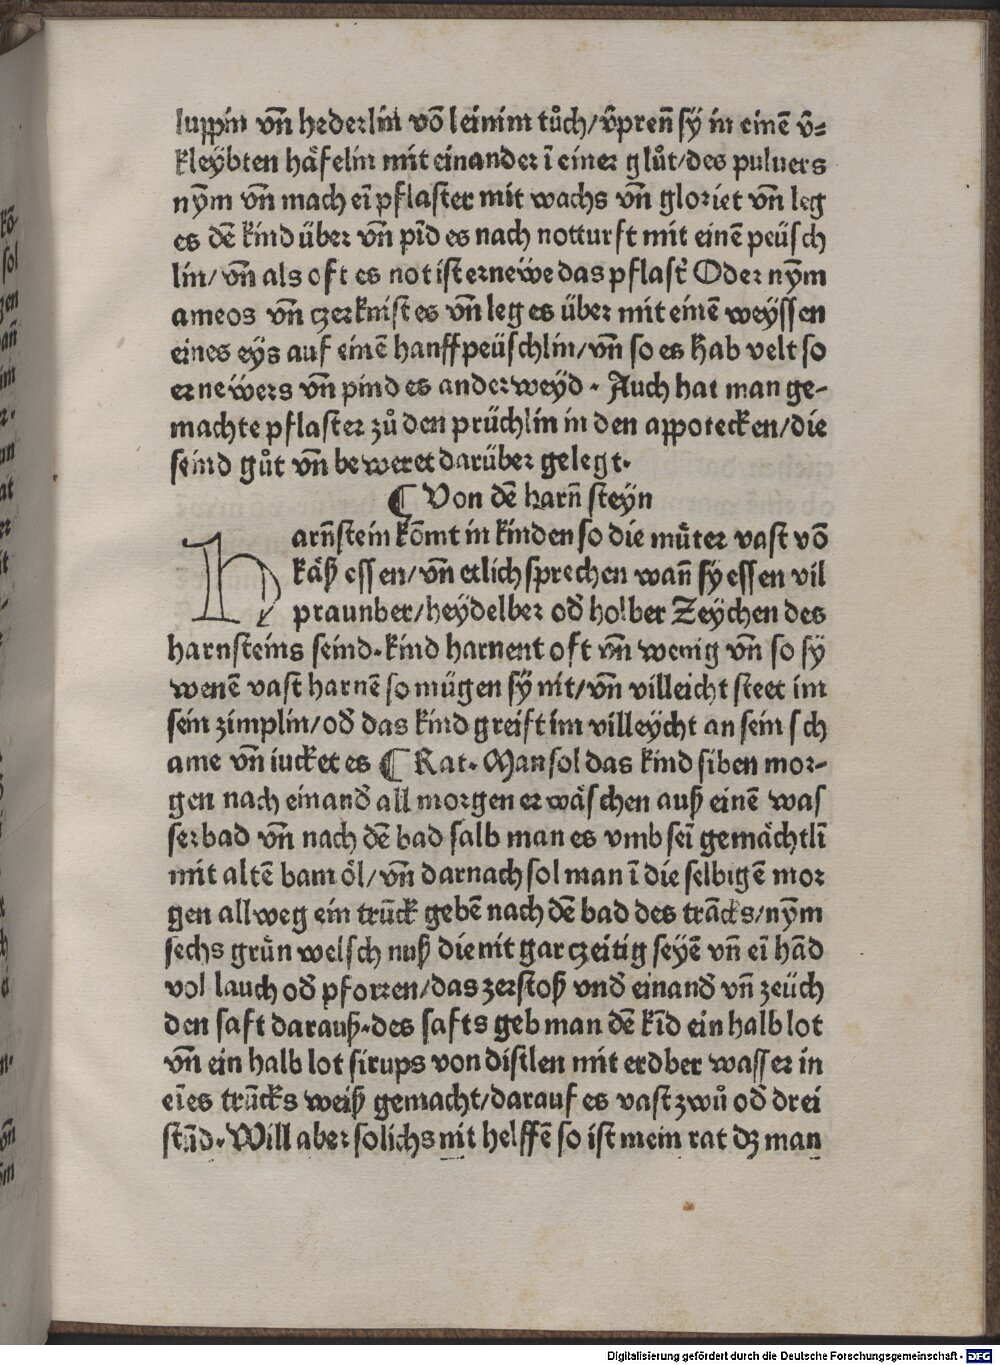 luppin vn̄ hederlin vō leinim tůch/v̄preñ sy in einē v̄⸗
kleybten häfelin mit einander ī einer glůt/des puluers
nym vn̄ mach eī pflaster mit wachs vn̄ gloriet vn̄ leg
es dē kind über vn̄ pīd es nach notturft mit einē peüsch
lin/vn̄ als oft es not ist ernewe das pflast̄ Oder nym
ameos vn̄ czerknist es vn̄ leg es über mit einē weyssen
eines eys auf einē hanffpeüschlin/vn̄ so es hab velt so
ernewers vn̄ pind es anderweyd. Auch hat man ge⸗
machte pflaster zů den prüchlin in den appotecken/die
seind gůt vn̄ beweret darüber gelegt.
¶ Von dē harn̄ steyn
Harn̄stein kōmt in kinden so die můter vast vō
käß essen/vn̄ etlich sprechen wan̄ sy essen vil
praunber/heydelber od̄ holber Zeychen des
harnsteins seind. kind harnent oft vn̄ wenig vn̄ so sy
wenē vast harnē so mügen sy nit/vn̄ villeicht steet im
sein zimplin/od̄ das kind greift im villeycht an sein sch
ame vn̄ iucket es ¶ Rat. Man sol das kind siben mor⸗
gen nach einand̄ all morgen erwäschen auß einē was
serbad vn̄ nach dē bad salb man es vmb seī gemächtlī
mit altē bam öl/vn̄ darnach sol man ī die selbigē mor
gen allweg ein trūck gebē nach dē bad des trācks/nym
sechs grün welsch nuß die nit gar czeitig seyē vn̄ eī hād
vol lauch od̄ pforren/das zerstoß vnd̄ einand̄ vn̄ zeüch
den saft darauß. des safts geb man dē kīd ein halb lot
vn̄ ein halb lot sirups von distlen mit erdber wasser in
eīes trūcks weiß gemacht/darauf es vast zwů od̄ drei
stūd. Will aber solichs nit helffē so ist mein rat dz man
Digitalisierung gefördert durch die Deutsche Forschungsgemeinschaft - DFG